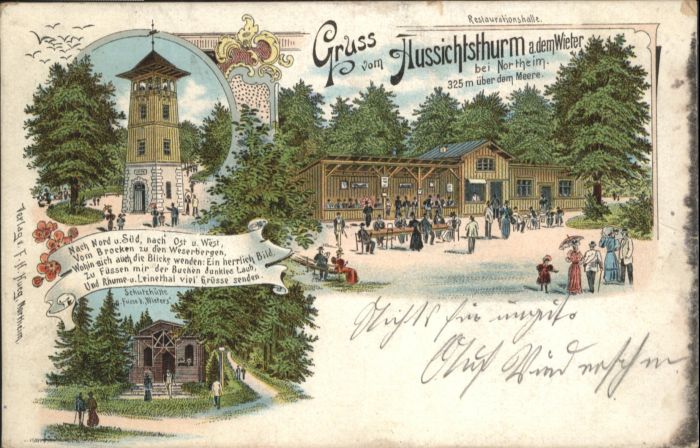 Restaurationshalle.
Gruss vom Aussichtsthurm a. dem Wieter
bei Northeim.
325 m über dem Meere.
Nach Nord u. Süd, nach Ost u. West,
Vom Brocken zu den Weserbergen,
Wohin sich auch die Blicke wenden: Ein herrlich Bild.
Zu Füssen mir der Buchen dunkles Laub,
Und Rhume- u. Leinethal viel' Grüsse senden.
Schutzhütte
"Winters"
Verlag v. F. H. Northeim.
Nichts für ungut.
Auf Wiedersehen